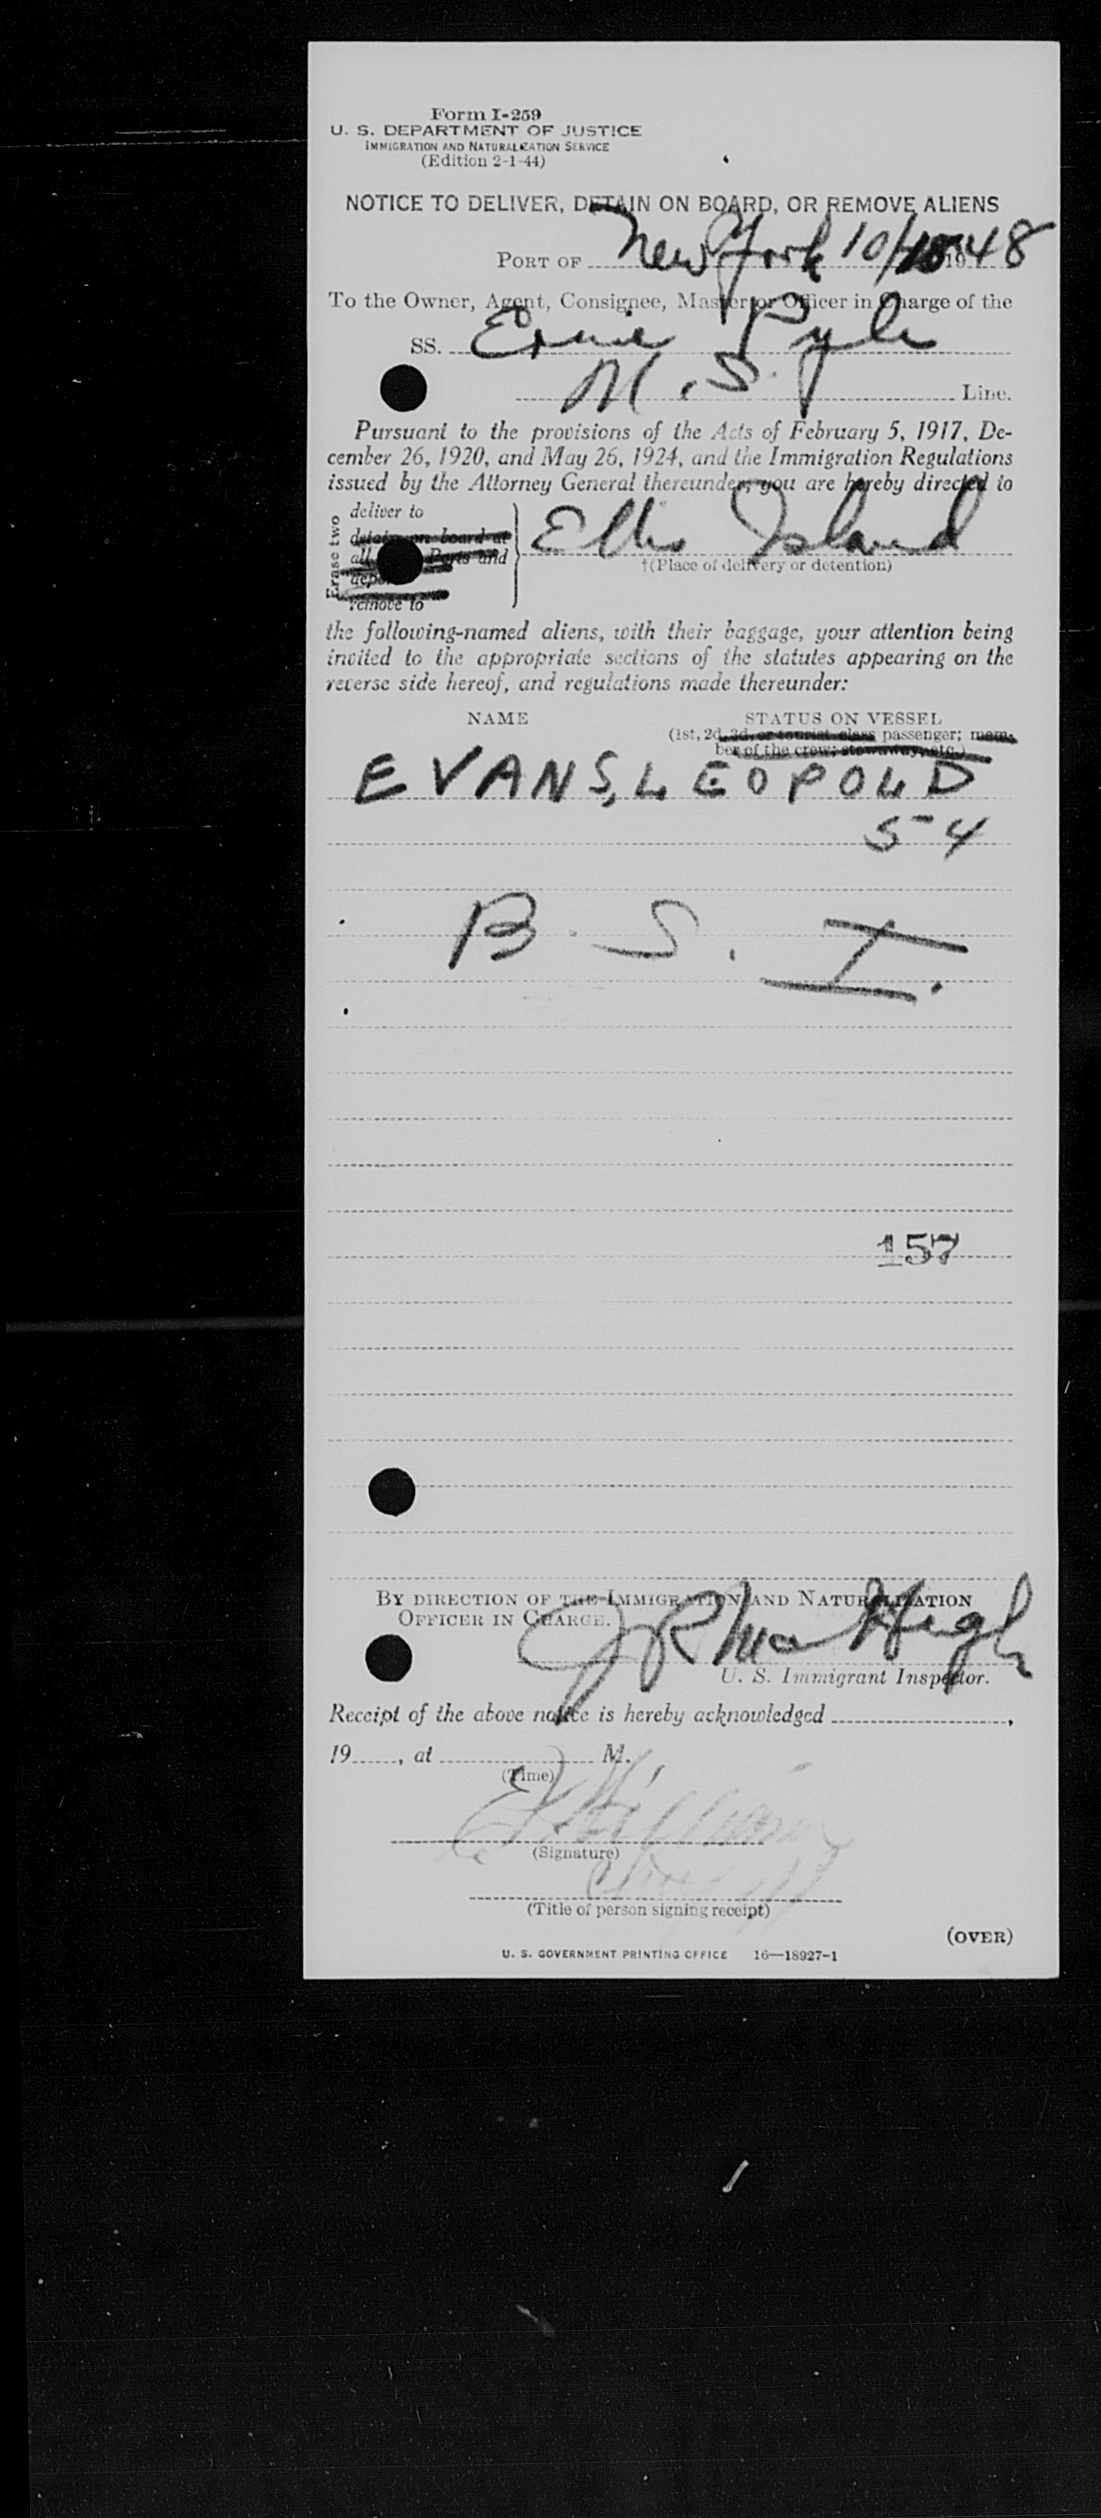 Form I-259
U. S. DEPARTMENT OF JUSTICE
IMMIGRATION AND NATURALIZATION SERVICE
(Edition 2-1-44)
NOTICE TO DELIVER, DETAIN ON BOARD, OR REMOVE ALIENS
PORT OF New York 10/ 1948
To the Owner, Agent, Consignee, Master or Officer in Charge of the
SS. Ernie Pyle
M. S. Line.
Pursuant to the provisions of the Acts of February 5, 1917, De-
cember 26, 1920, and May 26, 1924, and the Immigration Regulations
issued by the Attorney General thereunder, you are hereby directed to
Erase two
deliver to
detain on board at
all Ports and
remove to
Ellis Island
†(Place of delivery or detention)
the following-named aliens, with their baggage, your attention being
invited to the appropriate sections of the statutes appearing on the
reverse side hereof, and regulations made thereunder:
NAME STATUS ON VESSEL
(1st, 2d, 3d, or tourist class passenger; mem-
ber of the crew; stowaway, etc.)
EVANS, LEOPOLD
54
B. S. I.
157
BY DIRECTION OF THE IMMIGRATION AND NATURALIZATION
OFFICER IN CHARGE.
U. S. Immigrant Inspector.
Receipt of the above notice is hereby acknowledged ,
19 , at M.
(Time)
(Signature)
(Title of person signing receipt)
(OVER)
U. S. GOVERNMENT PRINTING OFFICE 16—18927-1